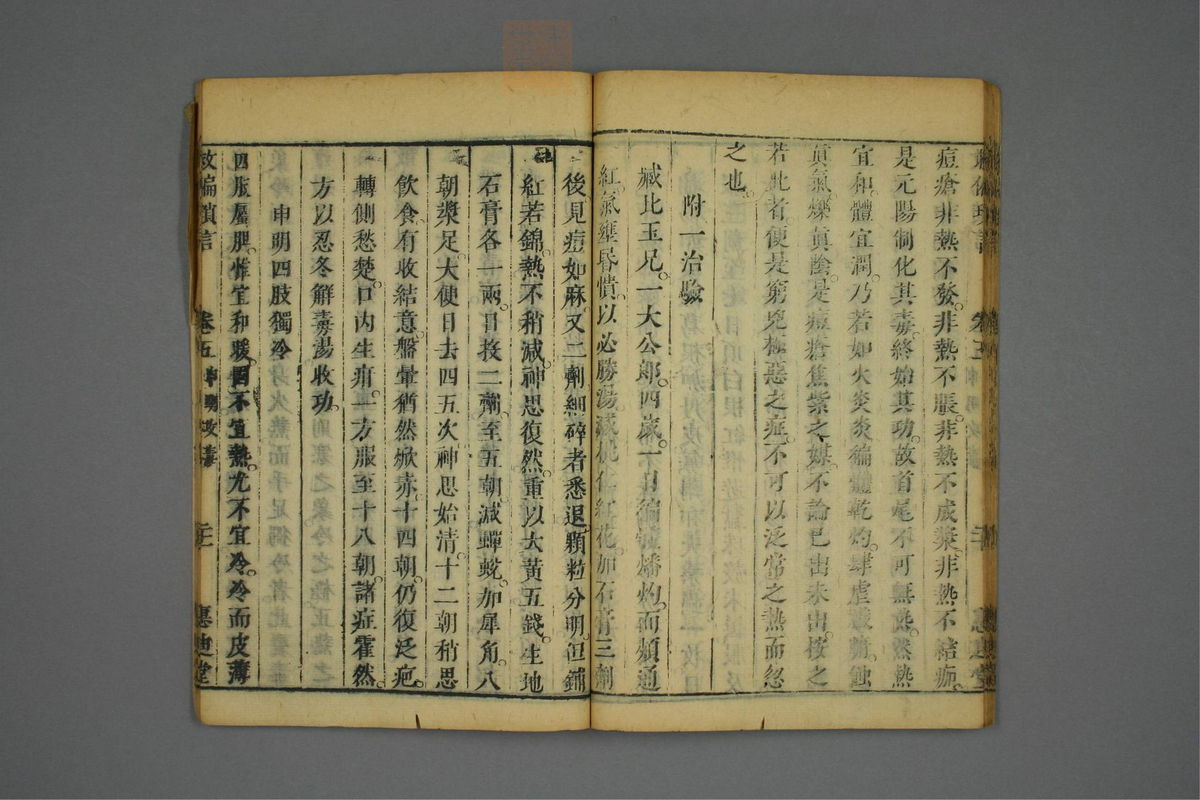 痘瘡非熱不發。非熱不脹。非熱不成漿。非熱不結痂。
是元陽制化其毒。終始其功。故首尾不可無熱。然熱
宜和。體宜潤。乃若如火炎炎。徧體乾灼。肆虐
眞氣。爍眞陰。是痘瘡焦紫之媒。不論已出未出。按之
若此者。便是窮兇極惡之症。不可以泛常之熱而忽
之也。
附一治驗
臧比玉兄。一大公郎。四歲。一日徧燔灼。而頰通
紅。氣壅昏憒。以必勝湯減桃仁紅花。加石膏三劑
後見痘如麻。又二劑。細碎者悉退。顆粒分明。但鋪
紅若錦。熱不稍減。神思復然。重以大黃五錢。生地
石膏各一兩。日投二劑。至五朝。減蟬蛻。加犀角。八
朝漿足。大便日去四五次。神思始清。十二朝稍思
飲食。有收結意。盤暈猶然焮赤。十四朝。仍復泛疤。
轉側愁楚。口內生疳。一方服至十八朝。諸症霍然。
方以忍冬解毒湯收功。
申明四肢獨冷
四肢屬脾。惟宜和暖。固不宜熱。尤不宜冷。冷而皮薄
救偏瑣言
卷五
惠迪堂